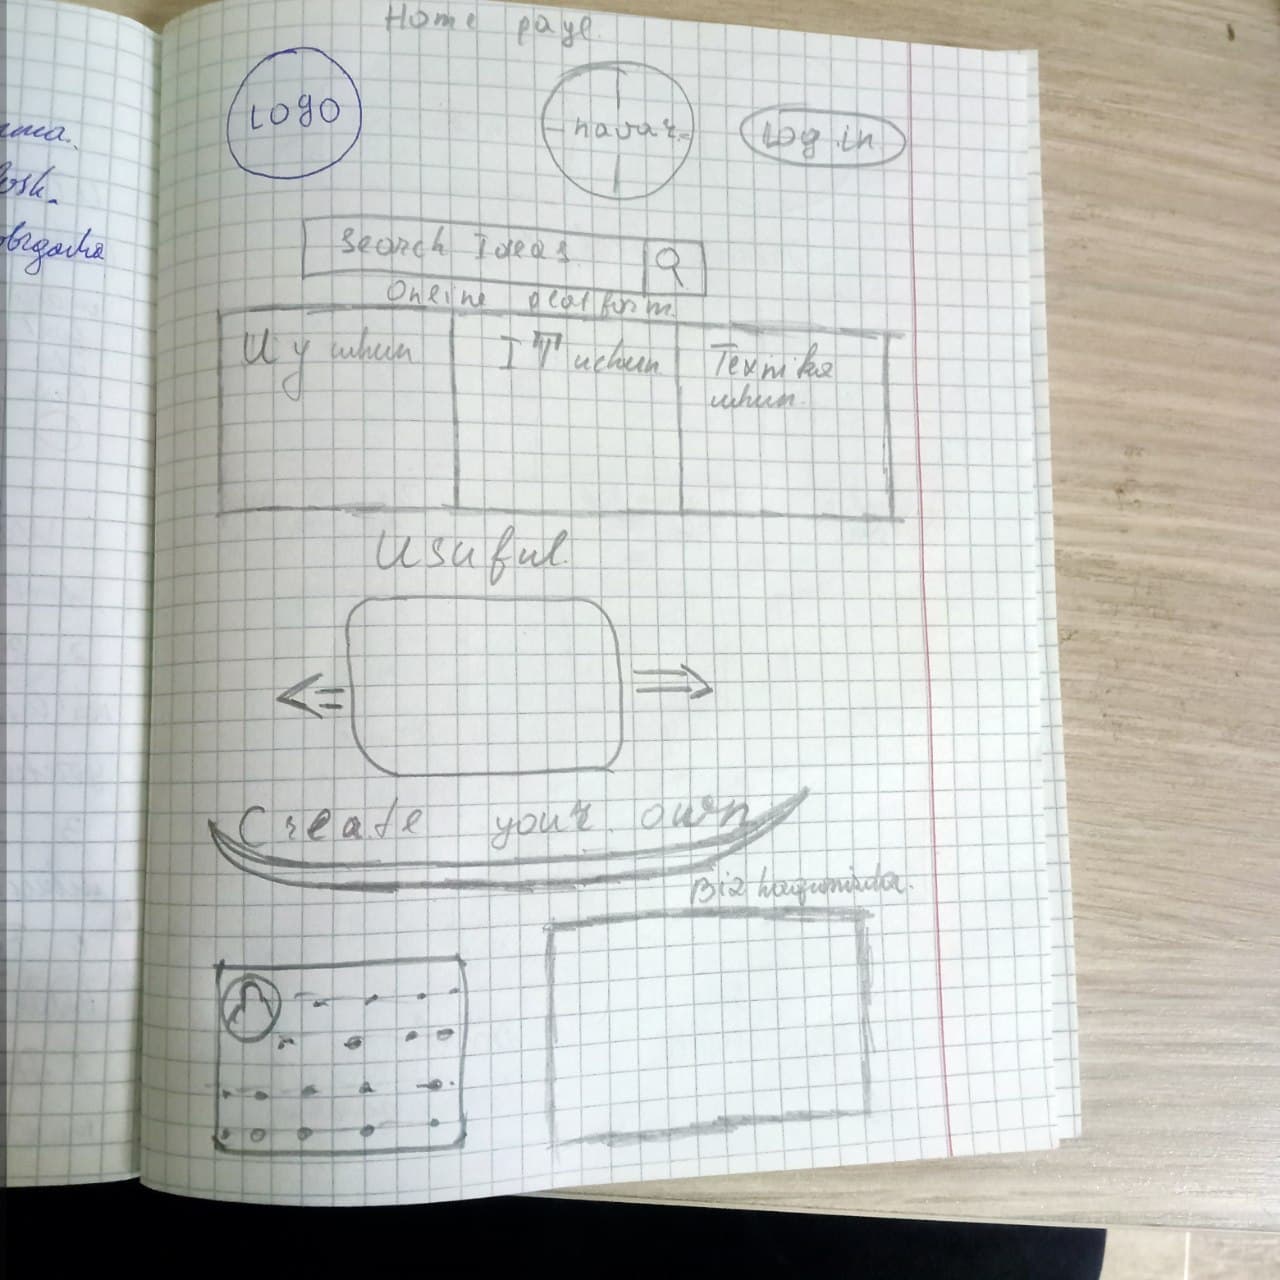 Home page.
Logo
navar
Log in
Search Ideas
Online platform
Uy uchun
IT uchun
Texnika
uchun.
Usuful.
Create your own
Biz haqimizda.